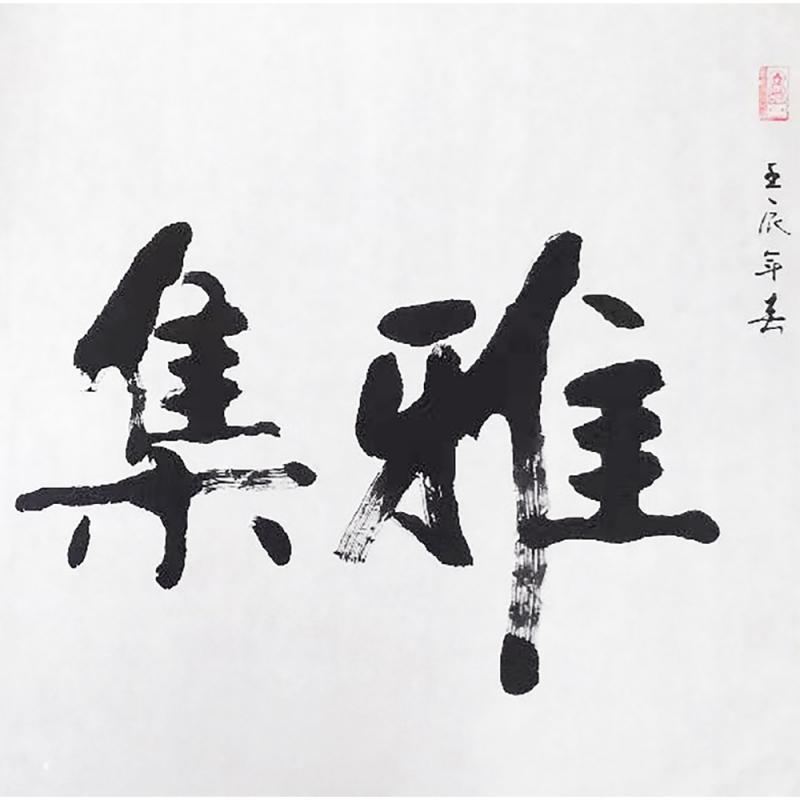 壬辰年春
雅集